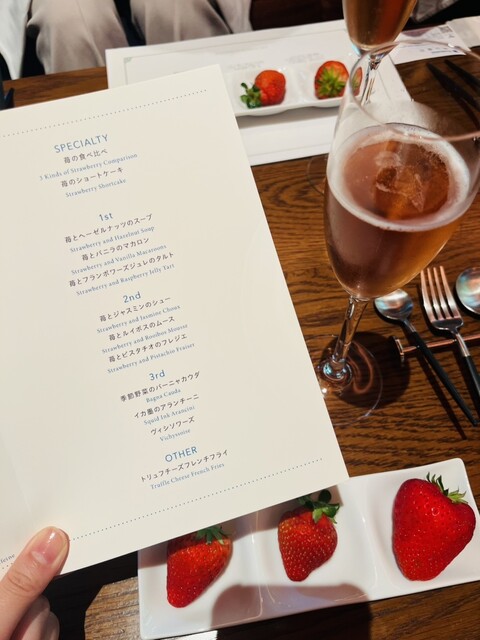 SPECIALTY
苺の食べ比べ
3 Kinds of Strawberry Comparison
苺のショートケーキ
Strawberry Shortcake
1st
苺とヘーゼルナッツのスープ
Strawberry and Hazelnut Soup
苺とバニラのマカロン
Strawberry and Vanilla Macarons
苺とフランボワーズジュレのタルト
Strawberry and Raspberry Jelly Tart
2nd
苺とジャスミンのシュー
Strawberry and Jasmine Choux
苺とルイボスのムース
Strawberry and Rooibos Mousse
苺とピスタチオのフレジエ
Strawberry and Pistachio Fraisier
3rd
季節野菜のバーニャカウダ
Bagna Cauda
イカ墨のアランチーニ
Squid Ink Arancini
ヴィシソワーズ
Vichyssoise
OTHER
トリュフチーズフレンチフライ
Truffle Cheese French Fries